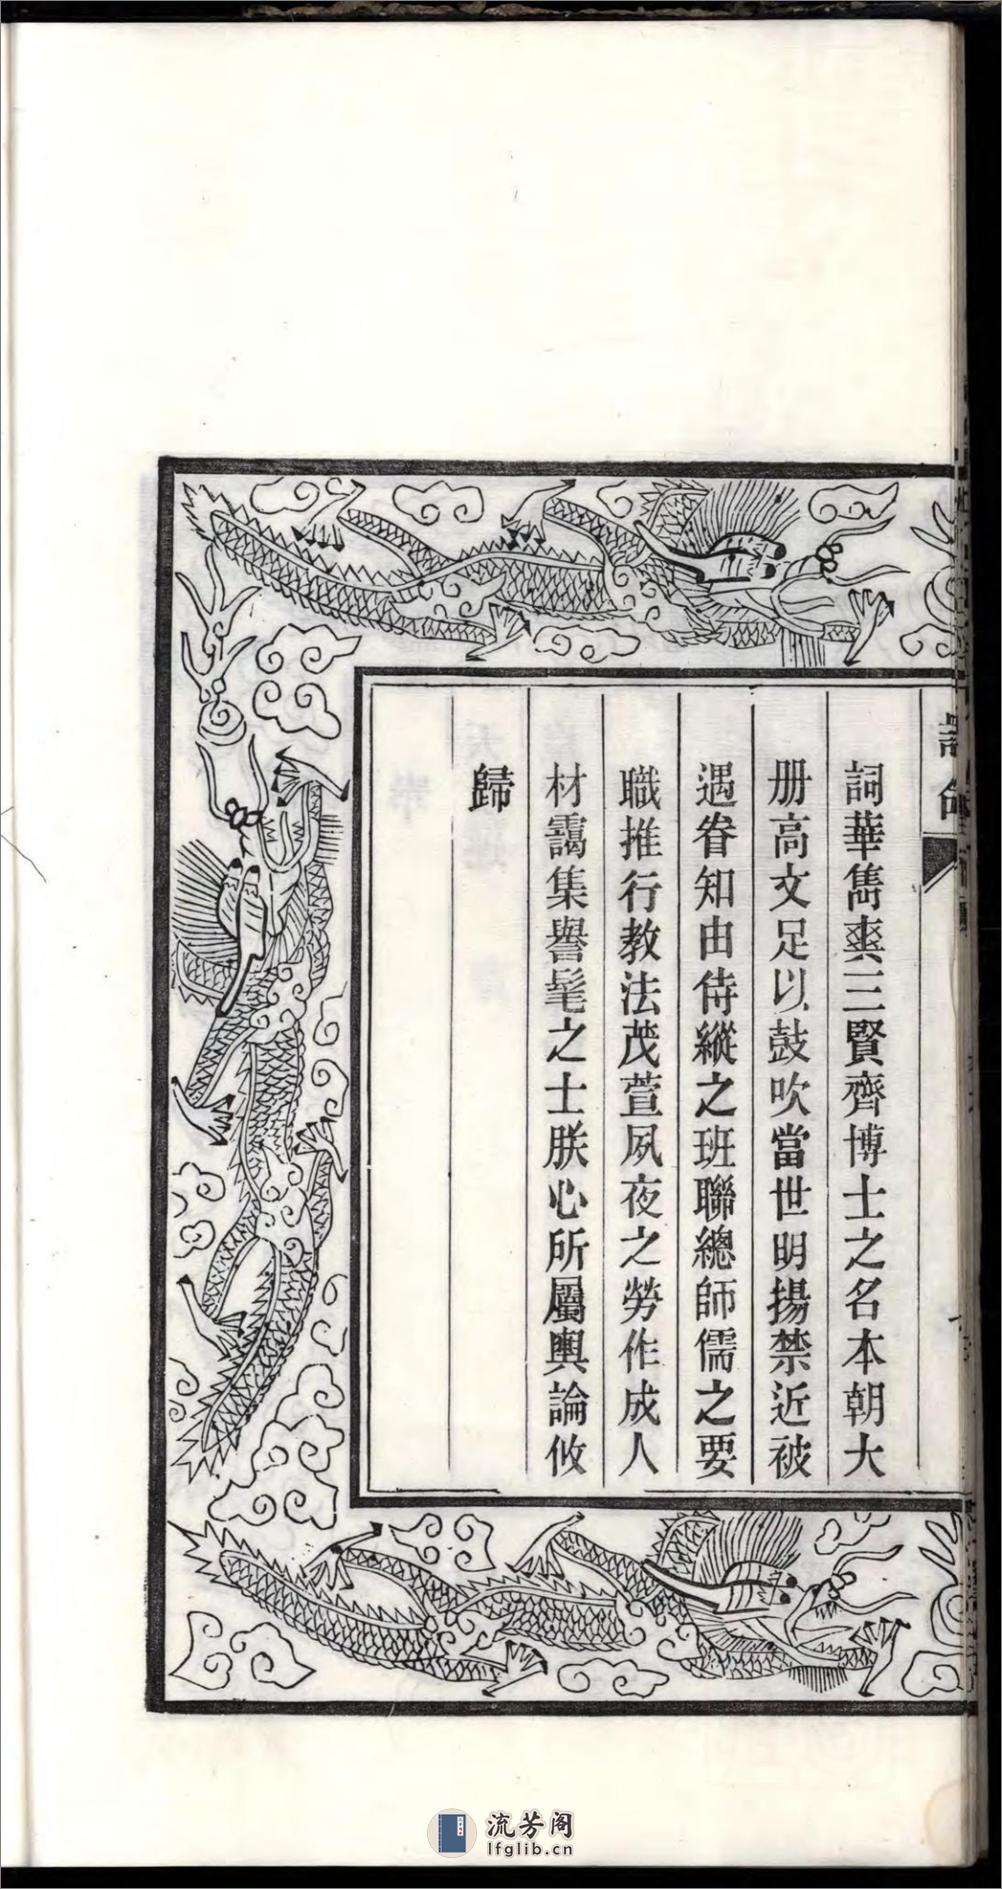 詞華雋爽三賢齊博士之名本朝大
册高文足以鼓吹當世明揚禁近被
遇眷知由侍縱之班聯總師儒之要
職推行教法茂萱夙夜之勞作成人
材靄集譽髦之士朕心所屬輿論攸
歸
流芳阁
lfglib.cn